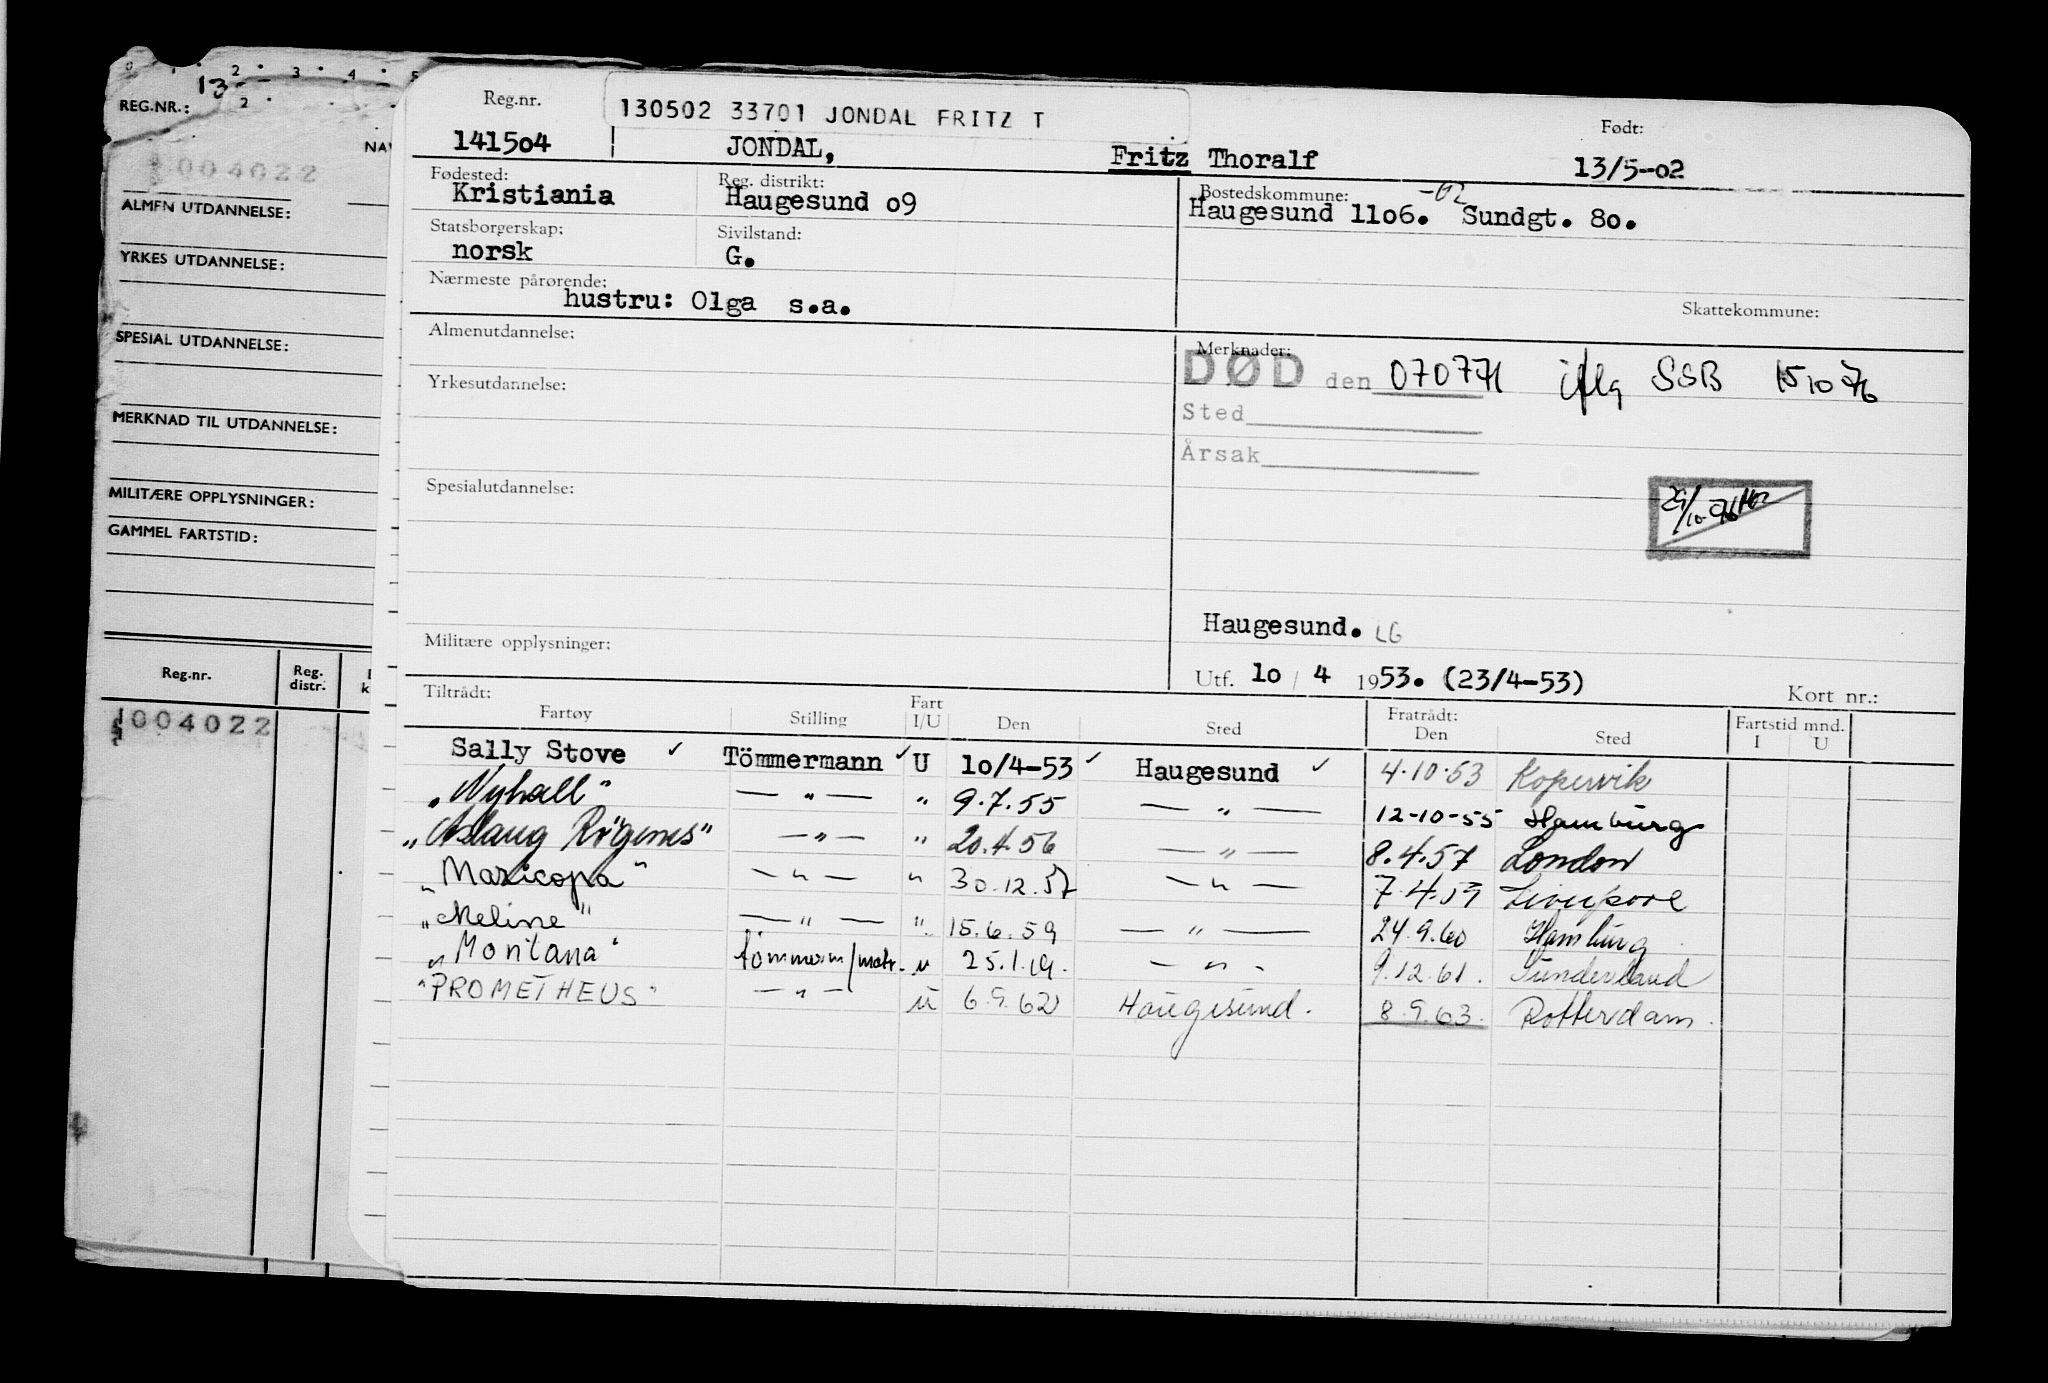 0 1 2 3 4 5
13
2
REG.NR.:
NAV
004022
ALMEN UTDANNELSE:
YRKES UTDANNELSE:
SPESIAL UTDANNELSE:
MERKNAD TIL UTDANNELSE:
MILITÆRE OPPLYSNINGER:
GAMMEL FARTSTID:
Reg.nr. Reg. distr.
004022
130502 33701 JONDAL FRITZ T
Reg.nr. Født:
141504 JONDAL, Fritz Thoralf 13/5-02
Fødested: Reg. distrikt: Bostedskommune:
Kristiania Haugesund 09 Haugesund 1106. -02 Sundgt. 80.
Statsborgerskap: Sivilstand:
norsk G.
Nærmeste pårørende:
hustru: Olga s.a.
Skattekommune:
Almenutdannelse: Merknader:
DØD den 070771 iflg SSB 151076
Yrkesutdannelse:
Sted
Årsak
Spesialutdannelse:
29/10-76
Haugesund. LG
Militære opplysninger:
Utf. 10 / 4 1953. (23/4-53) Kort nr.:
Tiltrådt: Fratrådt: Fartstid mnd.
Fartøy Stilling Fart I/U Den Sted Den Sted I U
Sally Stove ✓ Tömmermann ✓ U 10/4-53 ✓ Haugesund ✓ 4.10.53 Kopervik
"Nyhall" — " — " 9.7.55 — " — 12-10-55 Hamburg
"Aslaug Rögenes" — " — " 20.4.56 — " — 8.4.57 London
"Maricopa" — " — " 30.12.57 — " — 7.4.59 Liverpool
"Meline" — " — " 15.6.59 — " — 24.9.60 Hamburg
"Montana" tömmerm/matr. u 25.1.61. — " — 9.12.61. Sunderland
"PROMETHEUS" — " — u 6.9.62 Haugesund. 8.9.63. Rotterdam.